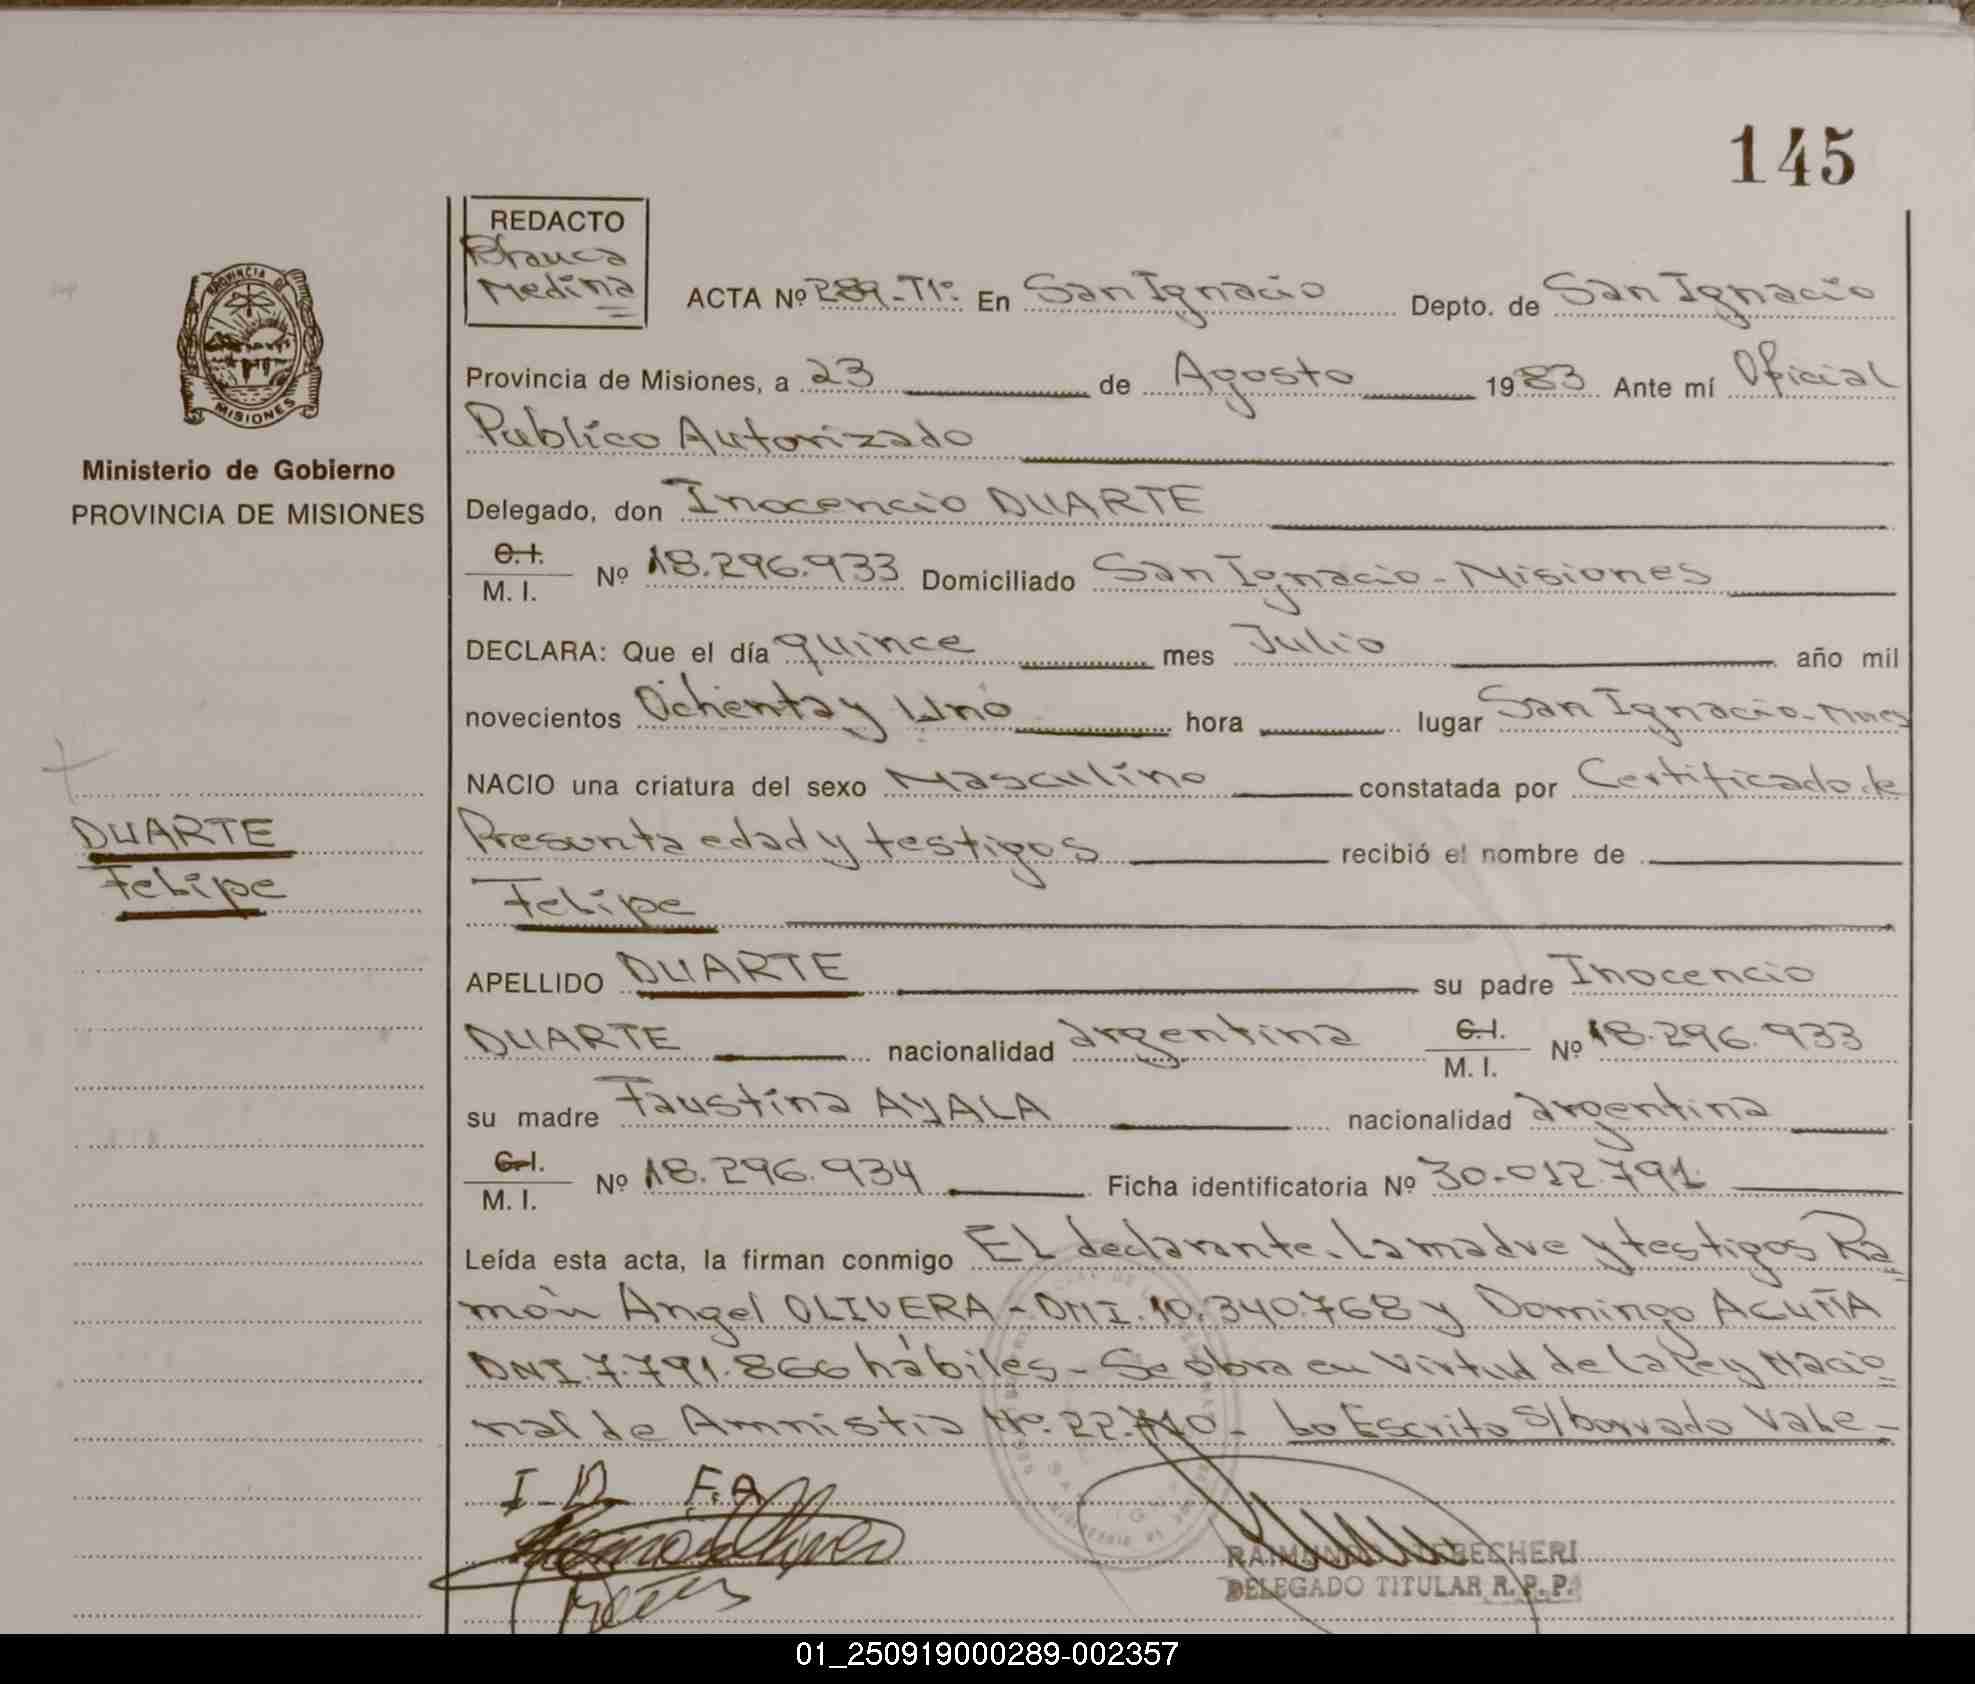 145
REDACTO
Blanca
Medina
ACTA Nº 289-Tº En San Ignacio Depto. de San Ignacio
Provincia de Misiones, a 23 de Agosto 1983 Ante mí Oficial
Publico Autorizado
Delegado, don Inocencio DUARTE
C.I. M.I. Nº 18.296.933 Domiciliado San Ignacio - Misiones
DECLARA: Que el día quince mes Julio año mil
novecientos Ochenta y Uno hora lugar San Ignacio - Mnes
NACIO una criatura del sexo Masculino constatada por Certificado de
Presunta edad y testigos recibió el nombre de
Felipe
APELLIDO DUARTE su padre Inocencio
DUARTE nacionalidad argentina C.I. M.I. Nº 18.296.933
su madre Faustina AYALA nacionalidad argentina
C.I. M.I. Nº 18.296.934 Ficha identificatoria Nº 30.012.791
Leída esta acta, la firman conmigo El declarante. La madre y testigos Ra=
món Angel OLIVERA - DNI. 10.340.768 y Domingo ACUÑA
DNI. 7.791.866 hábiles - Se obra en Virtud de la Ley Nacio=
nal de Amnistia Nº. 22. - Lo Escrito S/borrado Vale -
I - D F.A
RAIMUNDO
DELEGADO TITULAR R.P.P.
PROVINCIA DE
MISIONES
Ministerio de Gobierno
PROVINCIA DE MISIONES
DUARTE
Felipe
01_250919000289-002357